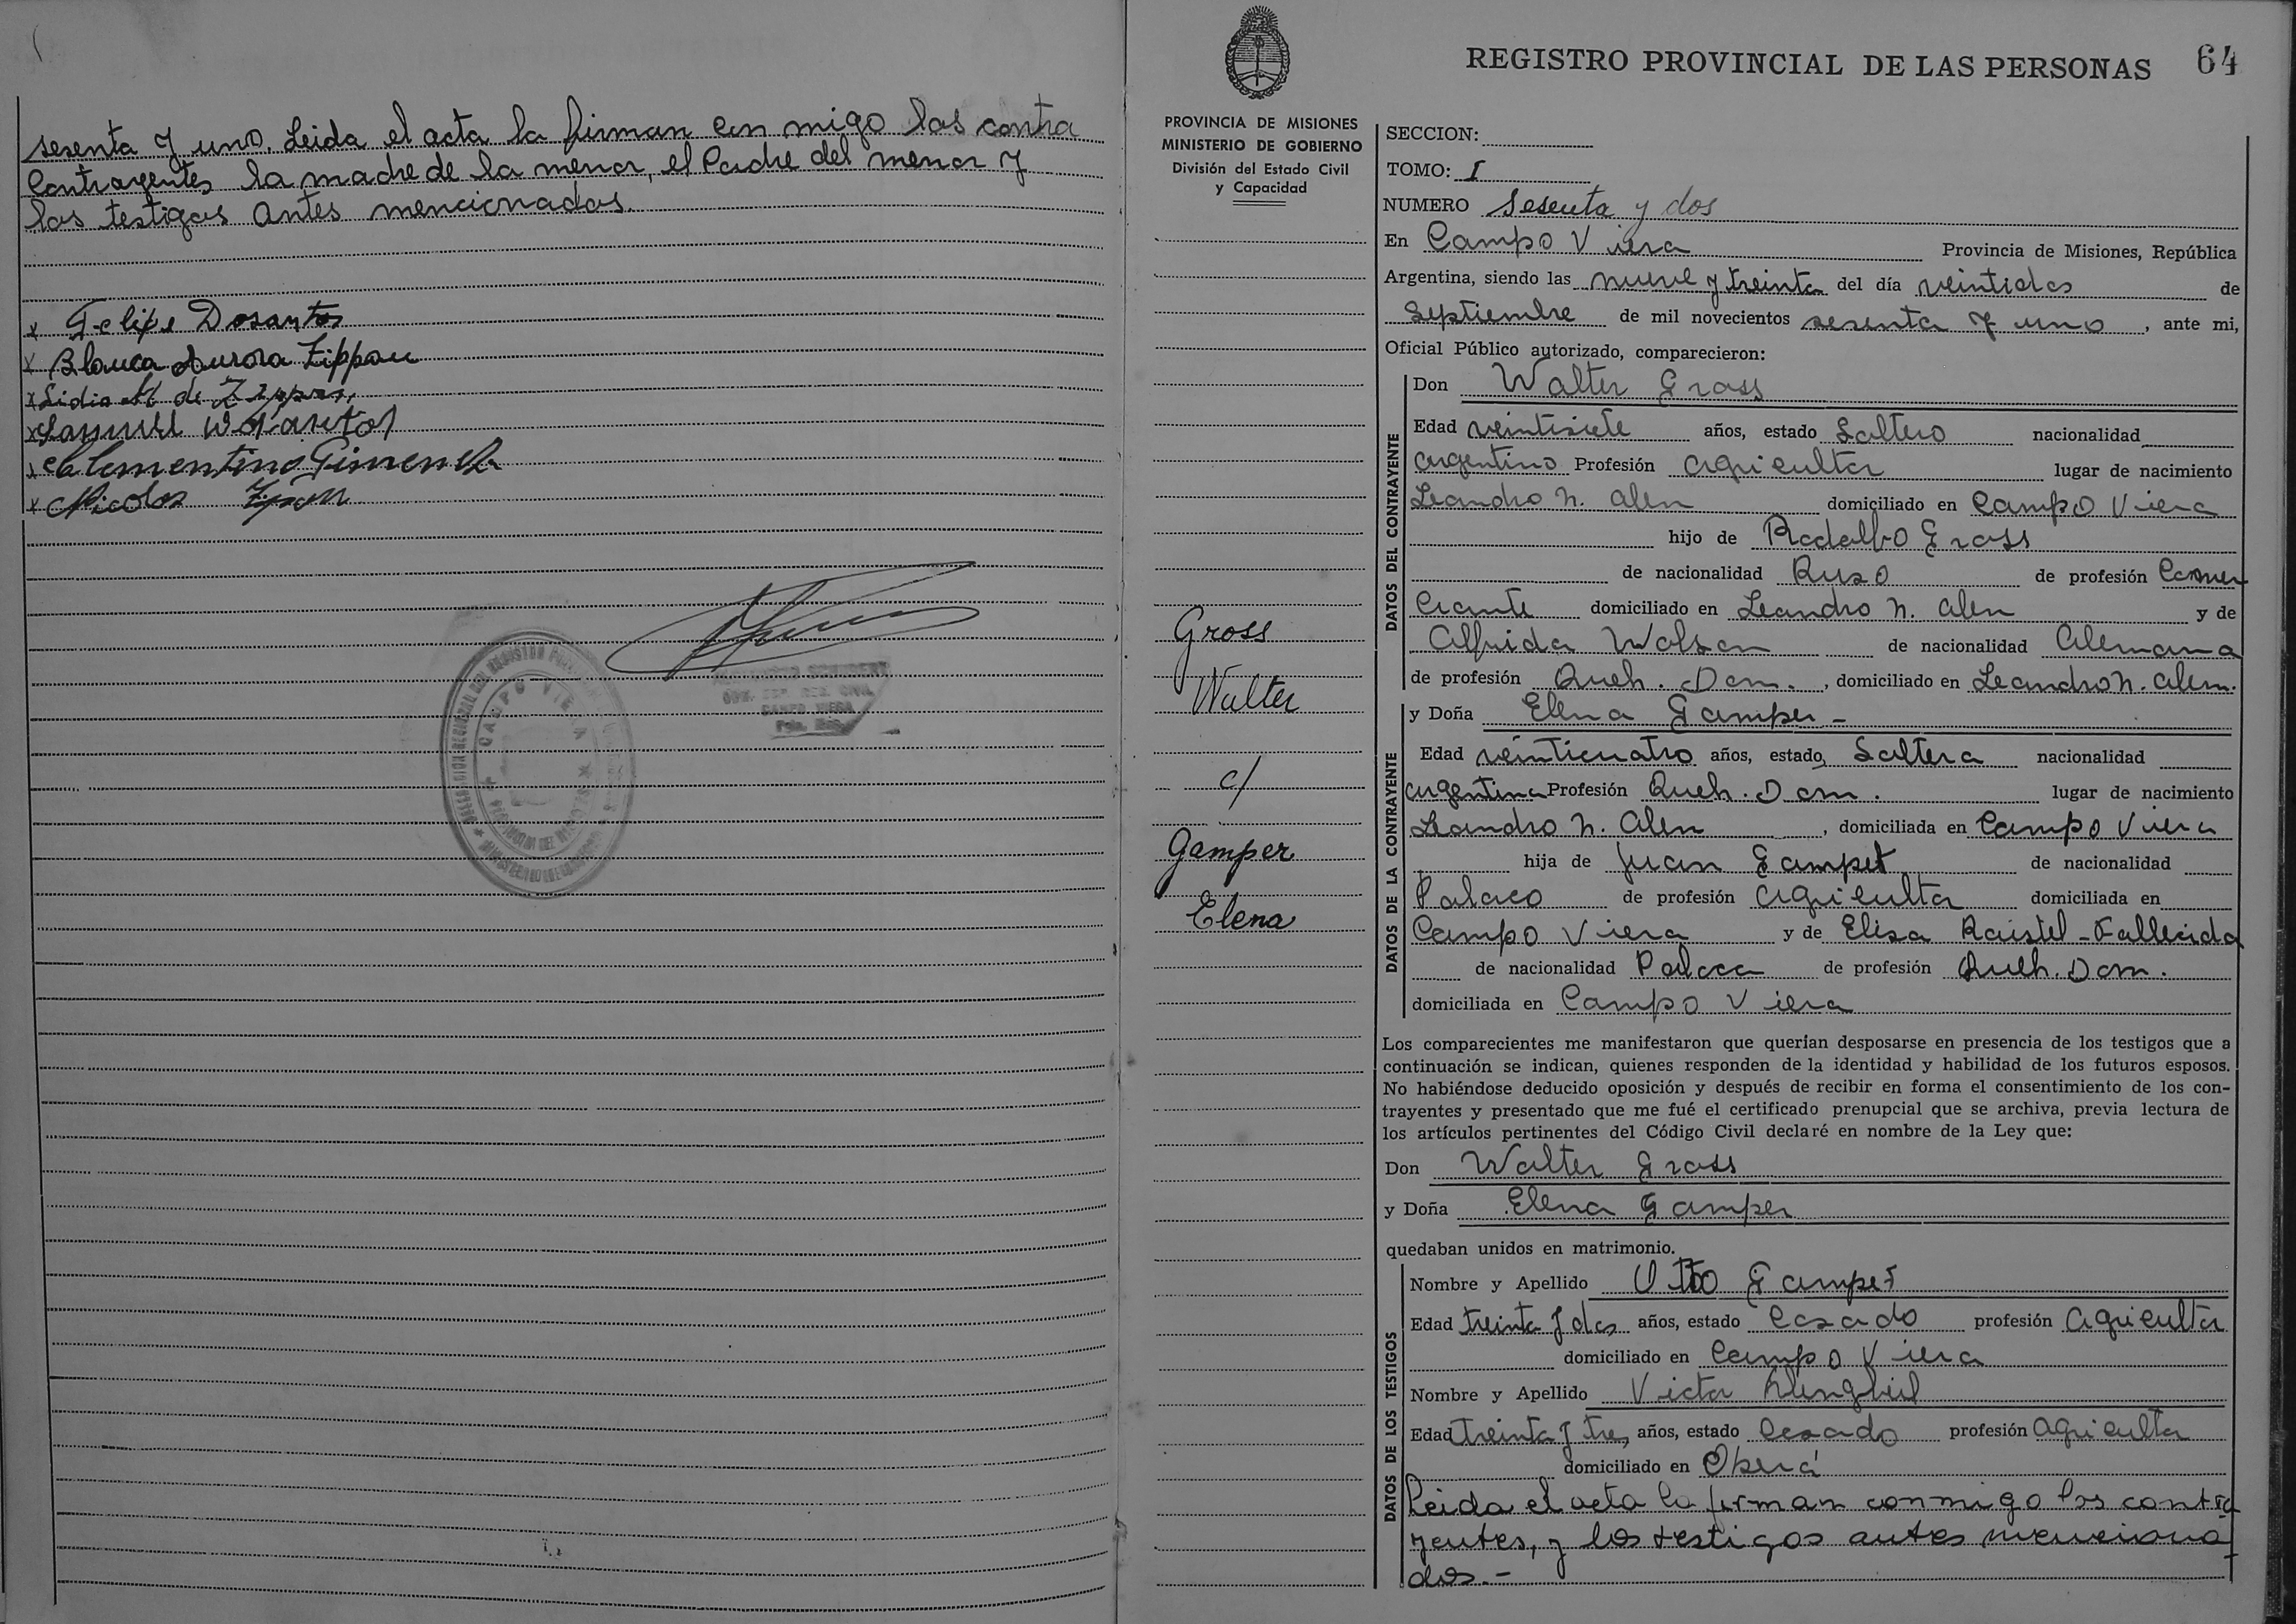 sesenta y uno. Leida el acta la firman con migo los contra
Contrayentes la madre de la menor, el Padre del menor y
los testigos antes mencionados.
x Felipe Dosantos
x Blanca Aurora Zippau
x Lidia M de
x
x Clementino Gimenez
x Nicolas
CAMPO VIERA
REGISTRO PROVINCIAL DE LAS PERSONAS 64
PROVINCIA DE MISIONES
MINISTERIO DE GOBIERNO
División del Estado Civil
y Capacidad
Gross
Walter
c/
Gamper
Elena
SECCION:
TOMO: I
NUMERO Sesenta y dos
En Campo Viera Provincia de Misiones, República
Argentina, siendo las nueve y treinta del día veintidos de
Septiembre de mil novecientos sesenta y uno, ante mi,
Oficial Público autorizado, comparecieron:
DATOS DEL CONTRAYENTE
Don Walter Gross
Edad veintisiete años, estado Soltero nacionalidad
argentino Profesión agricultor lugar de nacimiento
Leandro N. Alen domiciliado en Campo Viera
hijo de Rodolfo Gross
de nacionalidad Ruso de profesión Comer
ciante domiciliado en Leandro N. Alen y de
Alfrida Wolsan de nacionalidad Alemana
de profesión Queh. Dom., domiciliado en Leandro N. Alem.
DATOS DE LA CONTRAYENTE
y Doña Elena Gamper -
Edad veinticuatro años, estado, Soltera nacionalidad
argentina Profesión Queh. Dom. lugar de nacimiento
Leandro N. Alen, domiciliada en Campo Viera
hija de Juan Gamper de nacionalidad
Polaco de profesión agricultor domiciliada en
Campo Viera y de Elisa Raistel - Fallecida
de nacionalidad Polaca de profesión Queh. Dom.
domiciliada en Campo Viera
Los comparecientes me manifestaron que querían desposarse en presencia de los testigos que a
continuación se indican, quienes responden de la identidad y habilidad de los futuros esposos.
No habiéndose deducido oposición y después de recibir en forma el consentimiento de los con-
trayentes y presentado que me fué el certificado prenupcial que se archiva, previa lectura de
los artículos pertinentes del Código Civil declaré en nombre de la Ley que:
Don Walter Gross
y Doña Elena Gamper
quedaban unidos en matrimonio.
DATOS DE LOS TESTIGOS
Nombre y Apellido Otto Gamper
Edad treinta y dos años, estado Casado profesión agricultor
domiciliado en Campo Viera
Nombre y Apellido Victor
Edad treinta y tres, años, estado Casado profesión agricultor
domiciliado en Oberá
Leida el acta la firman conmigo los contra
yentes, y los testigos antes menciona
dos.-